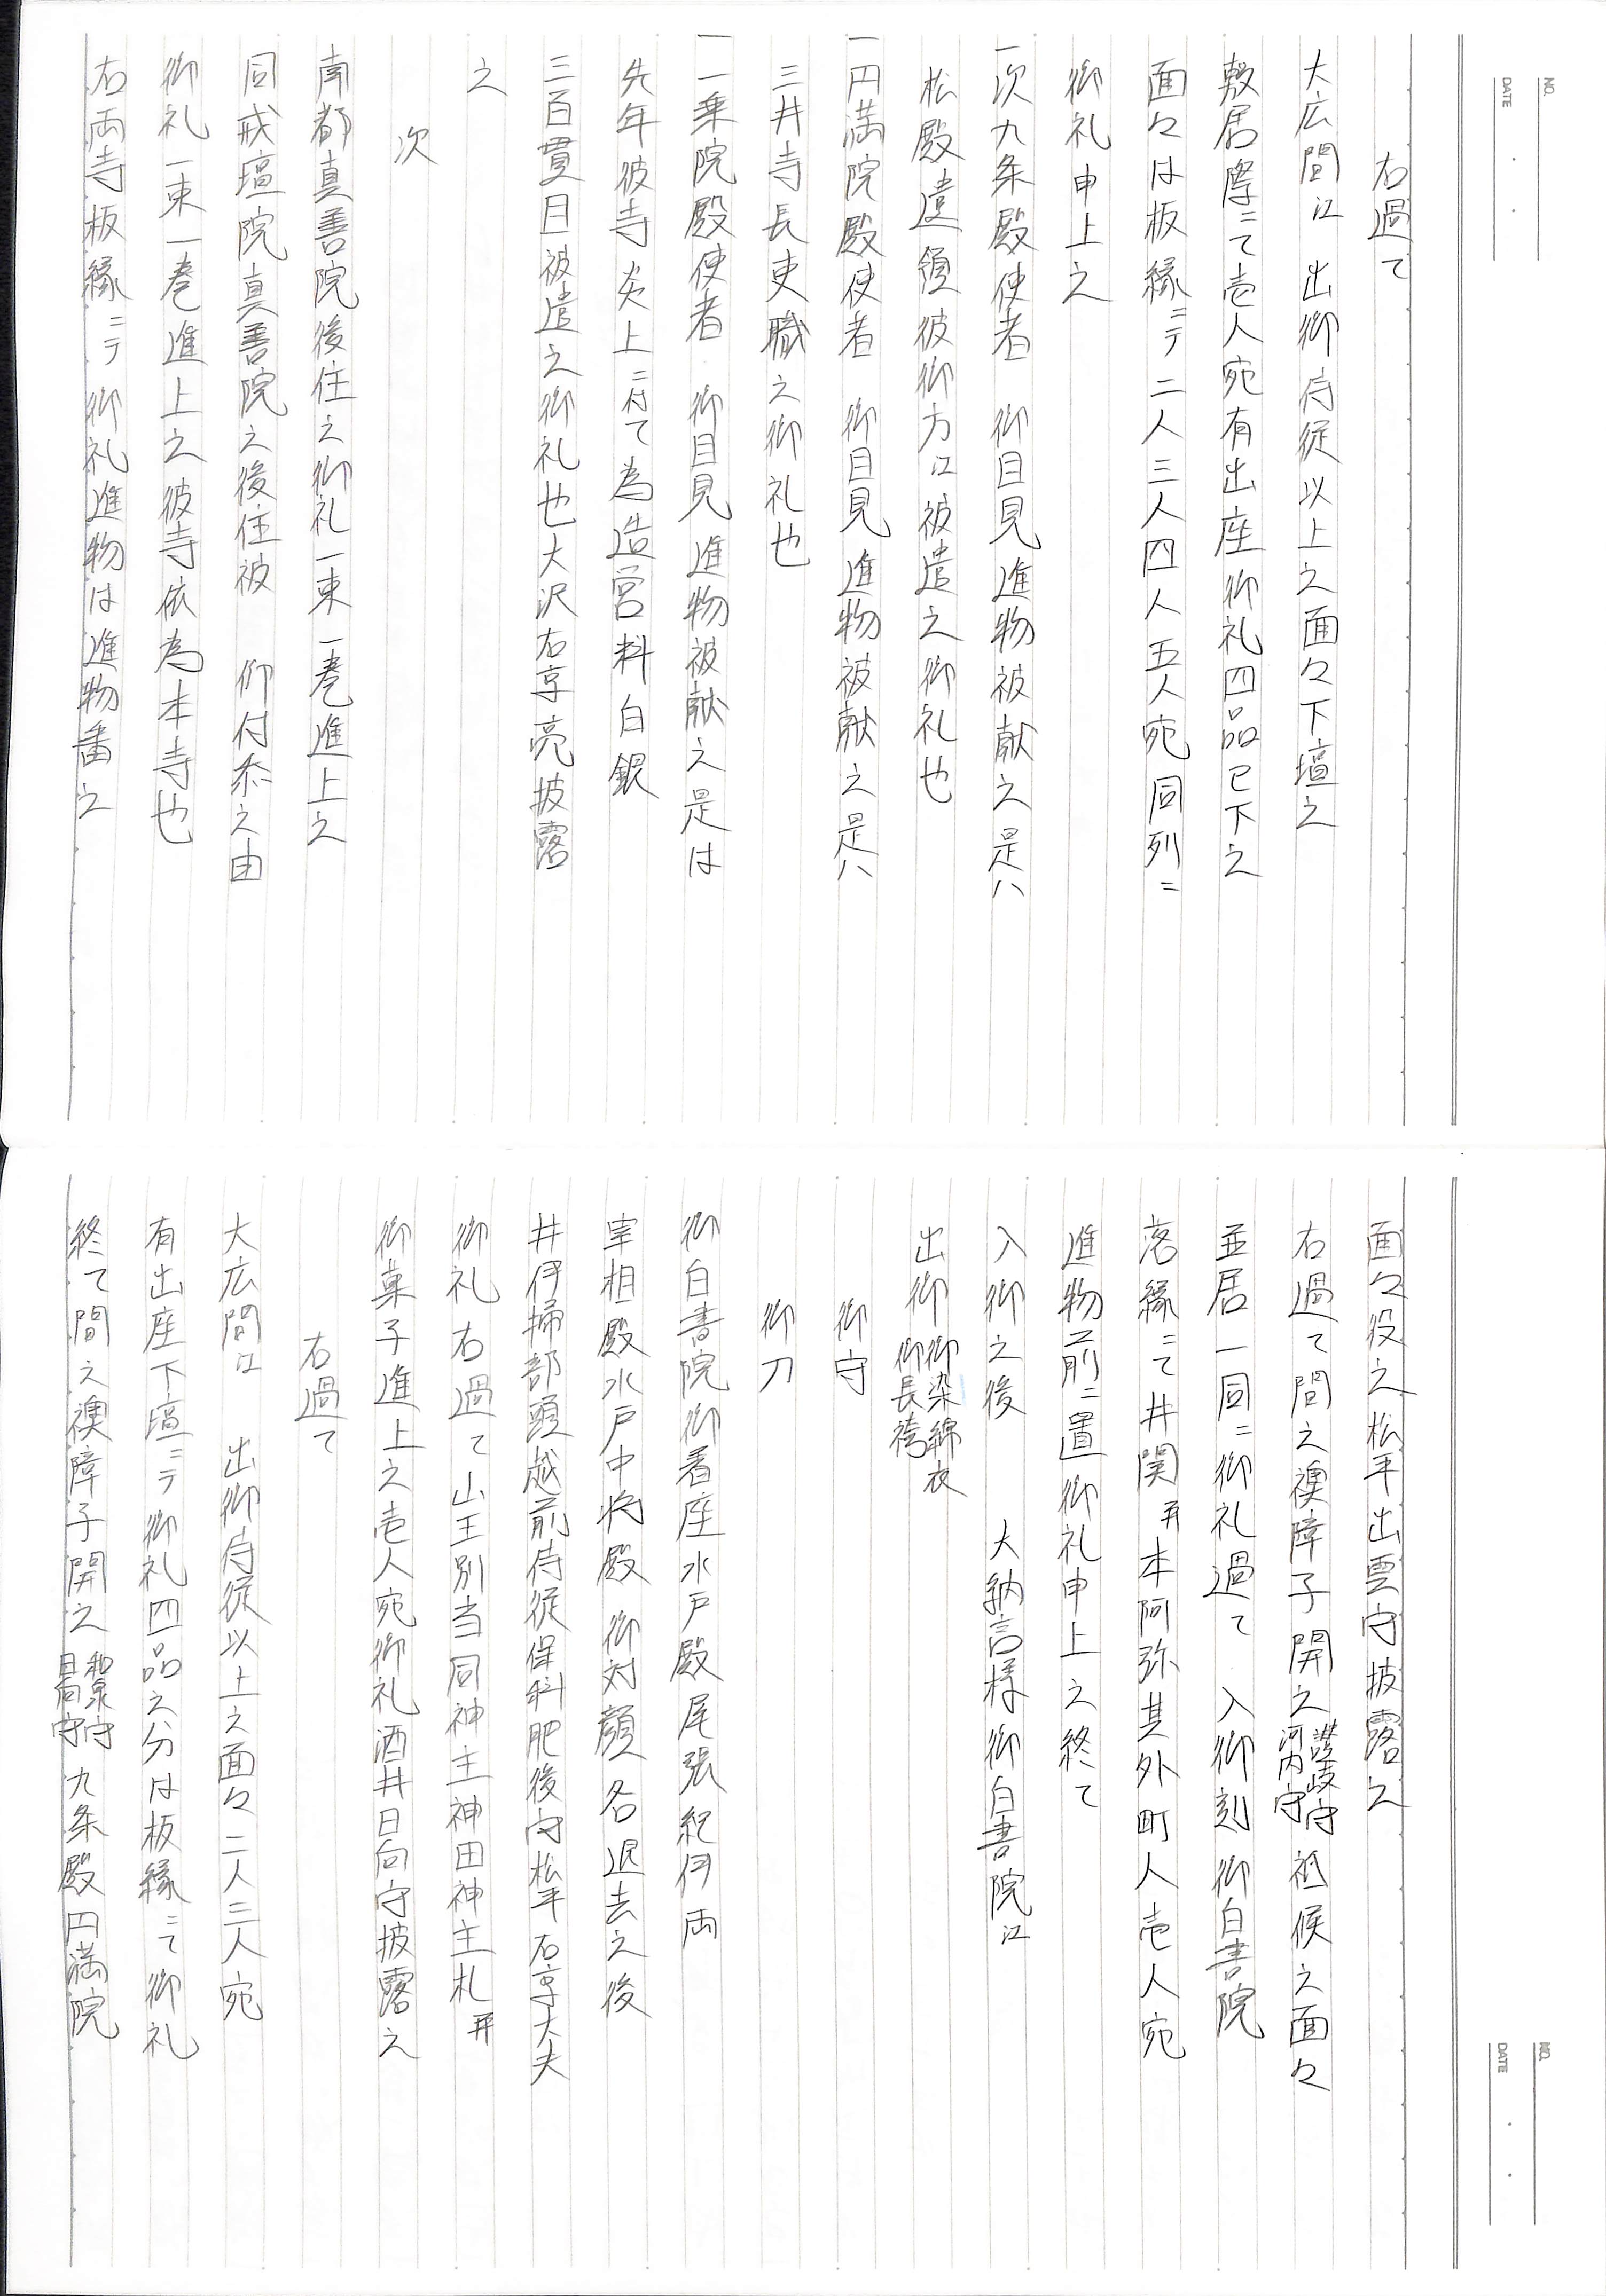 NO.
DATE
右過て
大広間江 出御侍従以上之面々下壇之
敷居際ニて壱人宛有出座御礼四品已下之
面々は板縁ニテ二人三人四人五人宛同列ニ
御礼申上之
一次九条殿使者 御目見進物被献之是ハ
松殿遺領彼御方江被遣之御礼也
一円満院殿使者 御目見進物被献之是ハ
三井寺長吏職之御礼也
一一乗院殿使者 御目見進物被献之是は
先年彼寺炎上ニ付て為造宮料白銀
三百貫目被遣之御礼也大沢右京亮披露
之
次
南都真善院後住之御礼一束一巻進上之
同戒壇院真善院之後住被 仰付忝之由
御礼一束一巻進上之彼寺依為本寺也
右両寺板縁ニテ御礼進物は進物番之
NO.
DATE
面々役之松平出雲守披露之
右過て間之襖障子開之讃岐守河内守祗候之面々
並居一同ニ御礼過て 入御刻御白書院
落縁ニて井関再本阿弥其外町人壱人宛
進物前ニ置御礼申上之終て
入御之後 大納言様御白書院江
出御御染綿衣御長袴
御守
御刀
御白書院御着座水戸殿尾張紀伊両
宰相殿水戸中将殿御対顔各退去之後
井伊掃部頭越前侍従保科肥後守松平右京大夫
御礼右過て山王別当同神主神田神主札再
御菓子進上之壱人宛御礼酒井日向守披露之
右過て
大広間江 出御侍従以上之面々二人三人宛
有出座下壇ニテ御礼四品之分は板縁ニて御礼
終て間之襖障子開之和泉守日向守九条殿円満院